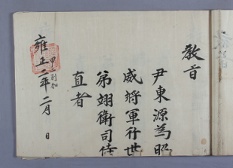 敎旨
尹東源爲昭
威將軍行世
弟翊衛司侍
直者
雍正二年二月 日